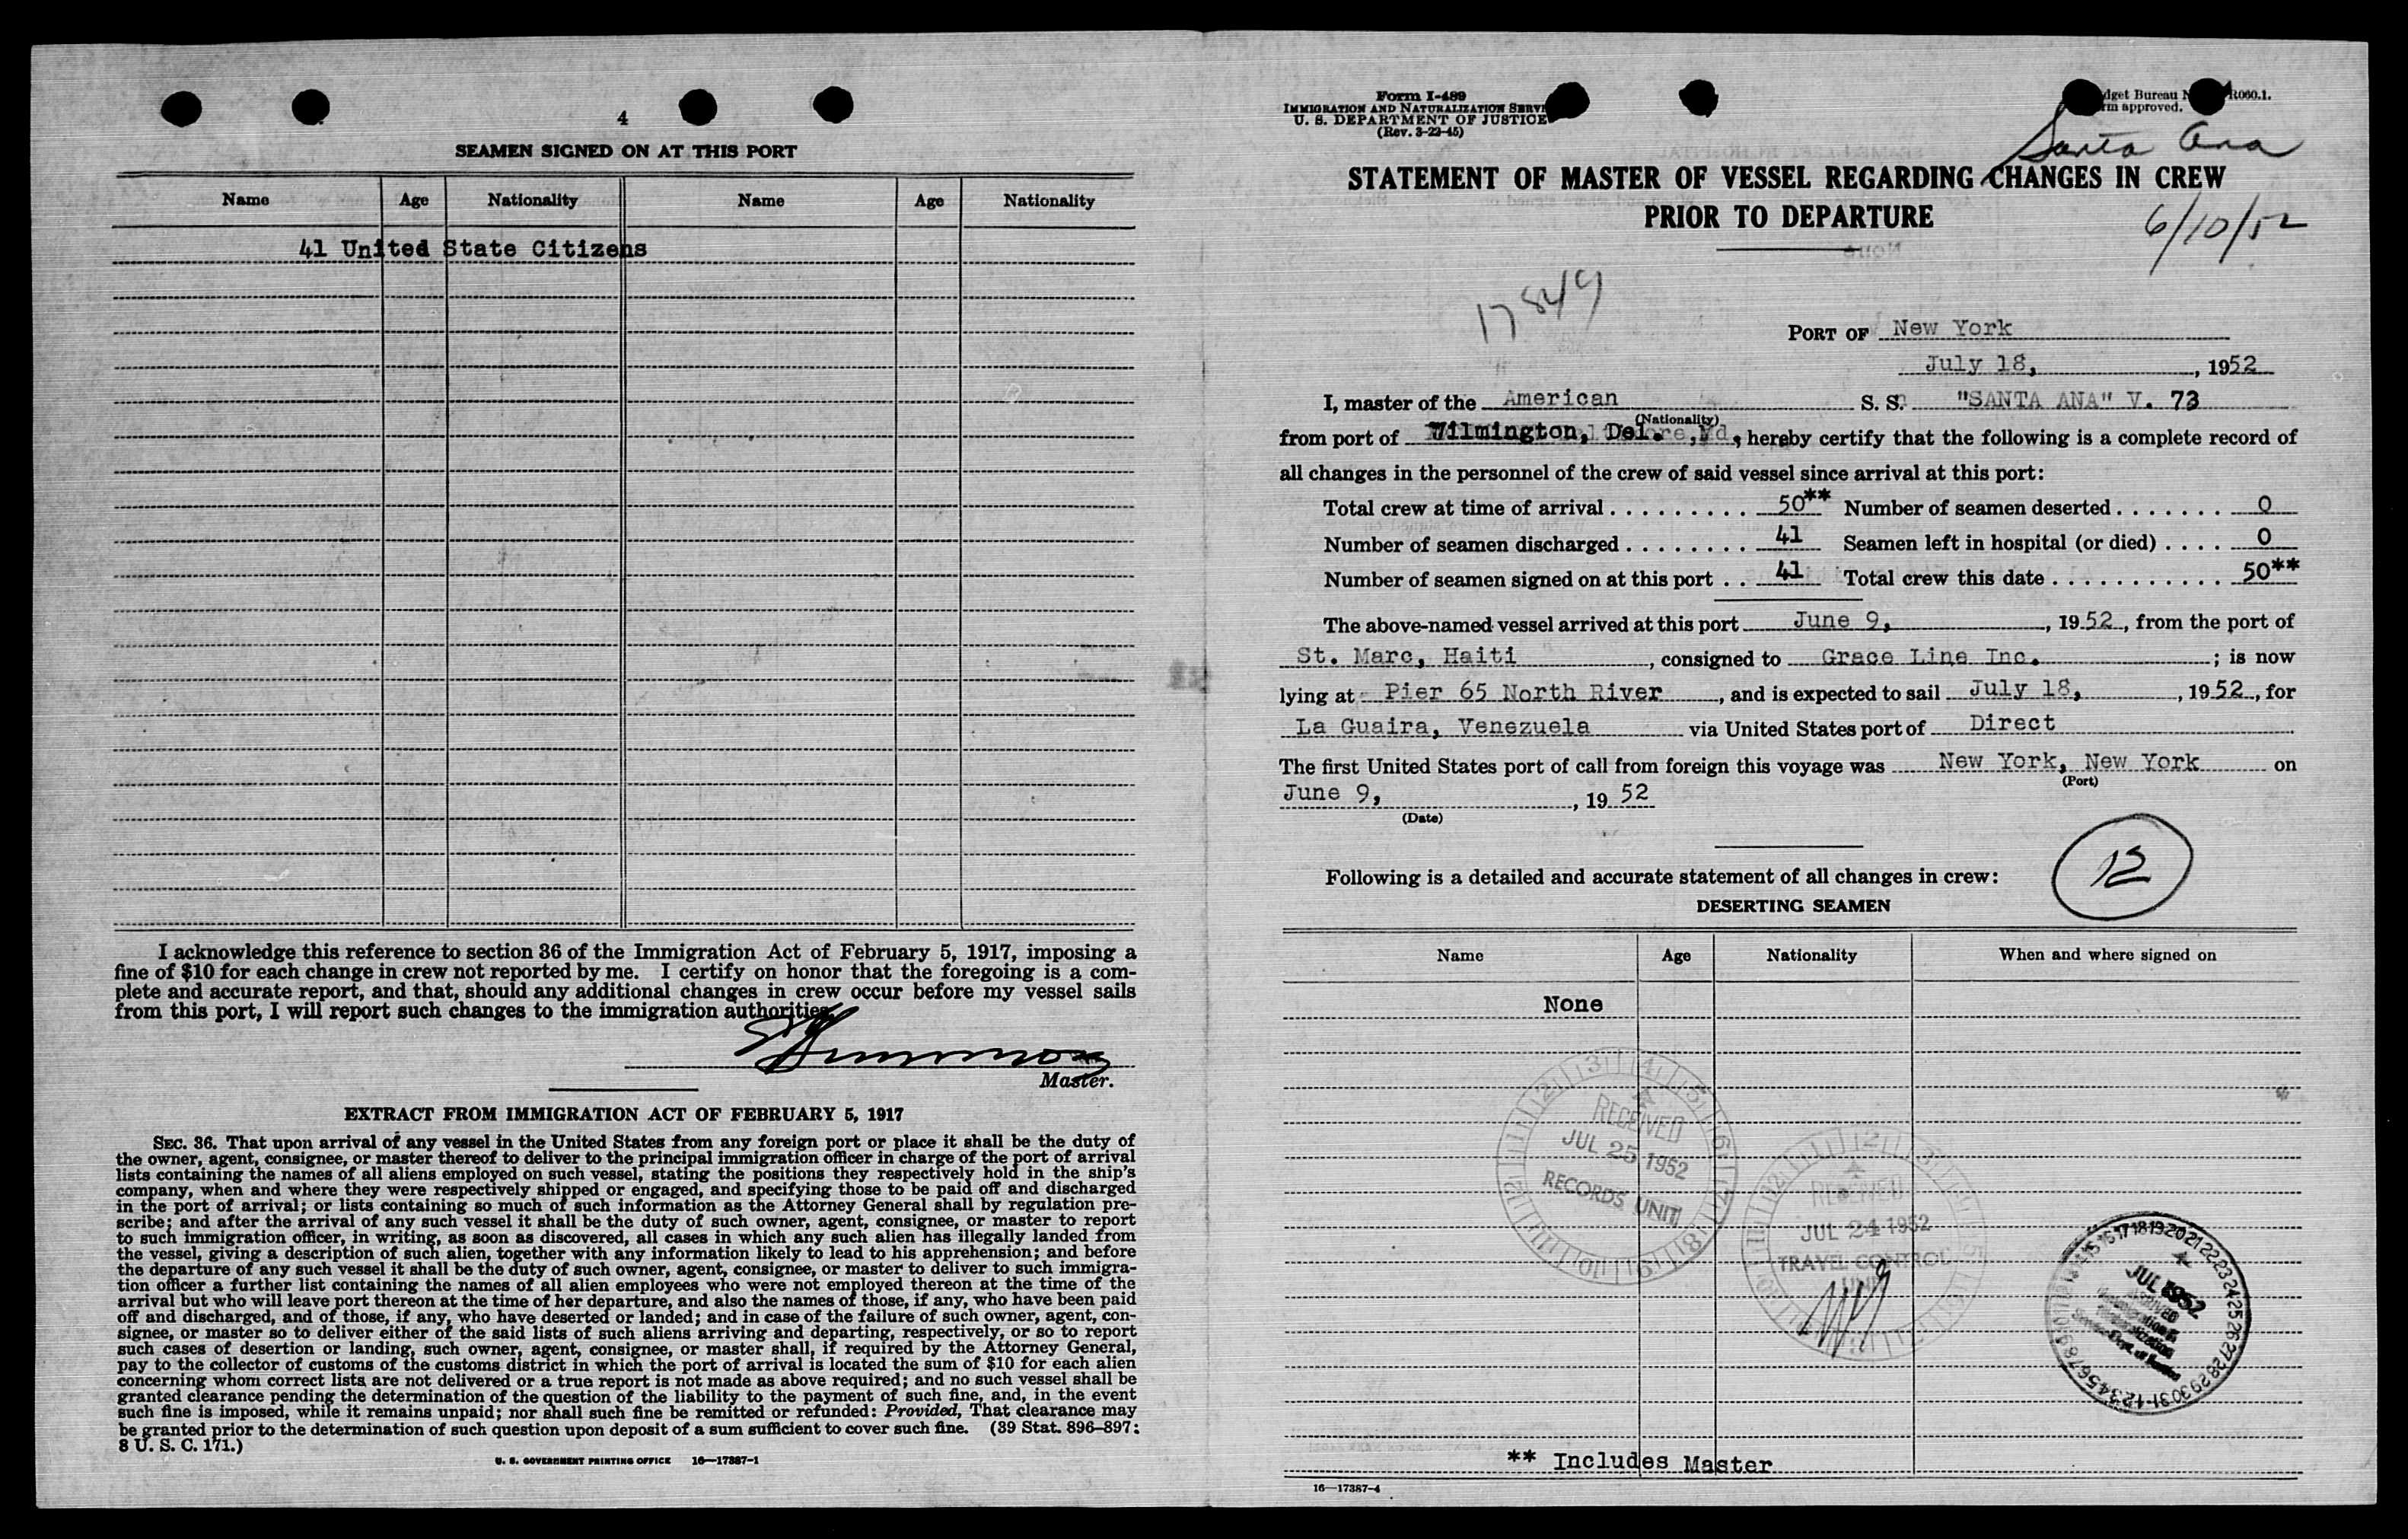 4
SEAMEN SIGNED ON AT THIS PORT
Name Age Nationality Name Age Nationality
41 United State Citizens
I acknowledge this reference to section 36 of the Immigration Act of February 5, 1917, imposing a
fine of $10 for each change in crew not reported by me. I certify on honor that the foregoing is a com-
plete and accurate report, and that, should any additional changes in crew occur before my vessel sails
from this port, I will report such changes to the immigration authorities.
Master.
EXTRACT FROM IMMIGRATION ACT OF FEBRUARY 5, 1917
SEC. 36. That upon arrival of any vessel in the United States from any foreign port or place it shall be the duty of
the owner, agent, consignee, or master thereof to deliver to the principal immigration officer in charge of the port of arrival
lists containing the names of all aliens employed on such vessel, stating the positions they respectively hold in the ship's
company, when and where they were respectively shipped or engaged, and specifying those to be paid off and discharged
in the port of arrival; or lists containing so much of such information as the Attorney General shall by regulation pre-
scribe; and after the arrival of any such vessel it shall be the duty of such owner, agent, consignee, or master to report
to such immigration officer, in writing, as soon as discovered, all cases in which any such alien has illegally landed from
the vessel, giving a description of such alien, together with any information likely to lead to his apprehension; and before
the departure of any such vessel it shall be the duty of such owner, agent, consignee, or master to deliver to such immigra-
tion officer a further list containing the names of all alien employees who were not employed thereon at the time of the
arrival but who will leave port thereon at the time of her departure, and also the names of those, if any, who have been paid
off and discharged, and of those, if any, who have deserted or landed; and in case of the failure of such owner, agent, con-
signee, or master so to deliver either of the said lists of such aliens arriving and departing, respectively, or so to report
such cases of desertion or landing, such owner, agent, consignee, or master shall, if required by the Attorney General,
pay to the collector of customs of the customs district in which the port of arrival is located the sum of $10 for each alien
concerning whom correct lists are not delivered or a true report is not made as above required; and no such vessel shall be
granted clearance pending the determination of the question of the liability to the payment of such fine, and, in the event
such fine is imposed, while it remains unpaid; nor shall such fine be remitted or refunded: Provided, That clearance may
be granted prior to the determination of such question upon deposit of a sum sufficient to cover such fine. (39 Stat. 896–897;
8 U. S. C. 171.)
U. S. GOVERNMENT PRINTING OFFICE 16—17387-1
Form I-489
IMMIGRATION AND NATURALIZATION SERVI
U. S. DEPARTMENT OF JUSTICE
(Rev. 3-22-45)
dget Bureau N R060.1.
rm approved.
Santa Ana
STATEMENT OF MASTER OF VESSEL REGARDING CHANGES IN CREW
PRIOR TO DEPARTURE
6/10/52
17849
PORT OF New York
July 18, , 1952
I, master of the American S. S. "SANTA ANA" V. 73
(Nationality)
from port of Wilmington, Del. , hereby certify that the following is a complete record of
all changes in the personnel of the crew of said vessel since arrival at this port:
Total crew at time of arrival . . . . . . . . . . 50** Number of seamen deserted . . . . . . . 0
Number of seamen discharged . . . . . . . . 41 Seamen left in hospital (or died) . . . . 0
Number of seamen signed on at this port . . 41 Total crew this date . . . . . . . . . . . . 50**
The above-named vessel arrived at this port June 9, , 1952, from the port of
St. Marc, Haiti , consigned to Grace Line Inc. ; is now
lying at Pier 65 North River , and is expected to sail July 18, , 1952, for
La Guaira, Venezuela via United States port of Direct
The first United States port of call from foreign this voyage was New York, New York on
(Port)
June 9, , 19 52
(Date)
12
Following is a detailed and accurate statement of all changes in crew:
DESERTING SEAMEN
Name Age Nationality When and where signed on
None
RECEIVED
JUL 25 1952
RECORDS UNIT
RECEIVED
JUL 24 1952
TRAVEL CONTROL
UNIT
** Includes Master
16—17387-4